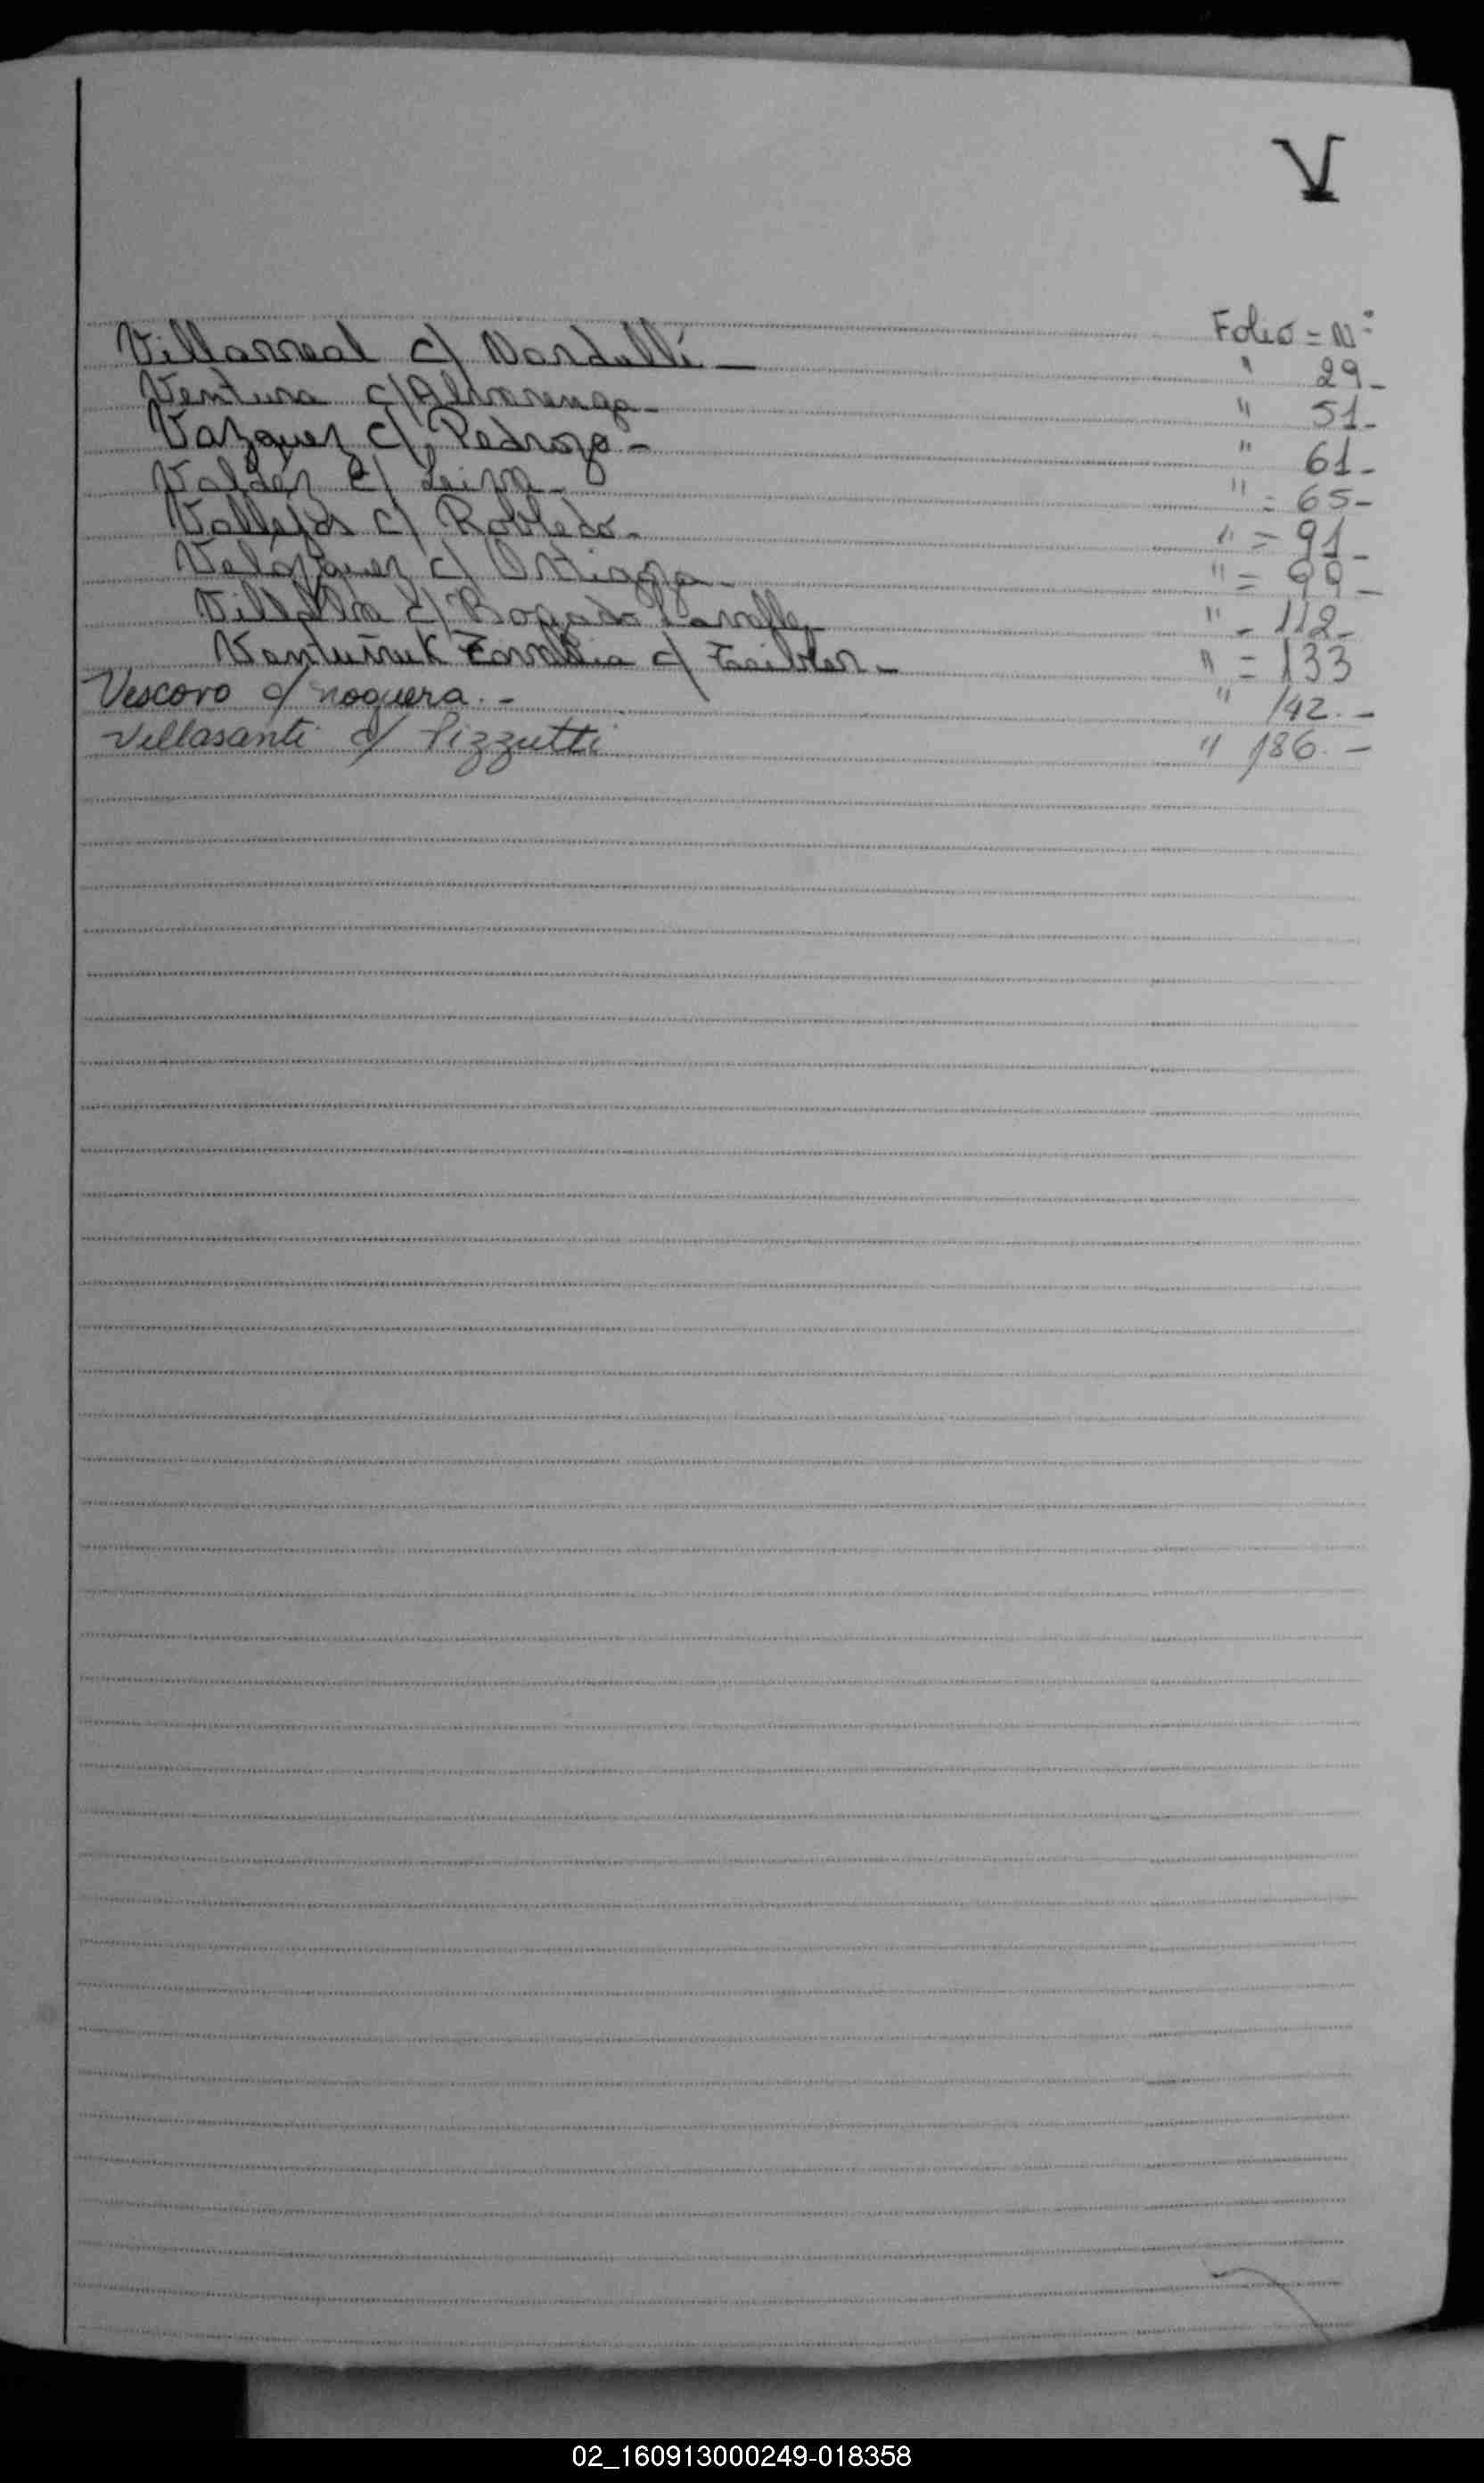 V
Folio = Nº
Villarreal c/ Nardelli — " 29-
Ventura c/ Alvarenga - " 51-
Vazquez c/ Pedrozo - " 61-
Valdéz c/ Leiva - " = 65-
Vallejos c/ Robledo - " = 91-
Velázquez c/ Ortigoza - " = 99-
Villalba c/ Bogado " - 112-
c/ " = 133
Vescovo c/ noguera. - " 142. -
Villasanti c/ Pizzutti " 186. -
02_160913000249-018358